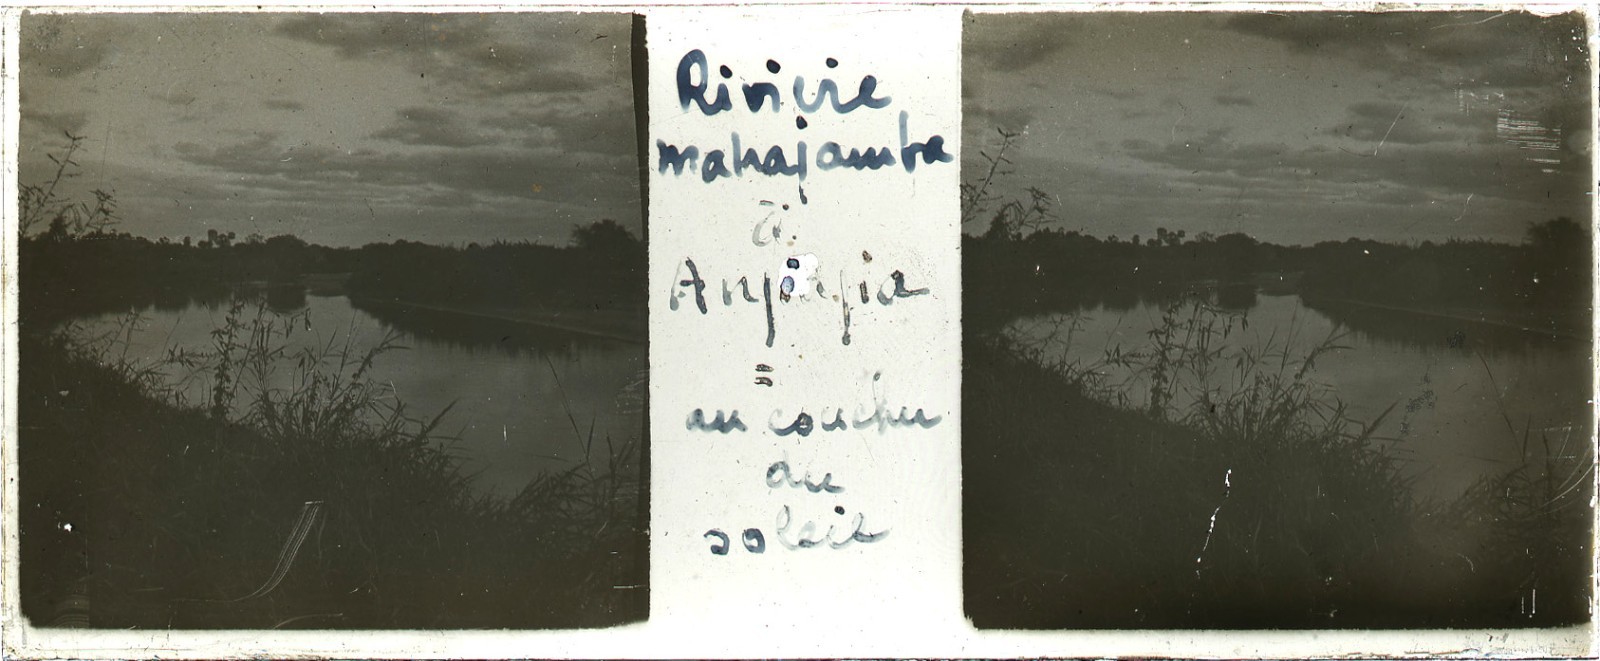 Rivière
mahajamba
à
Anjiajia
=
au coucher
du
soleil